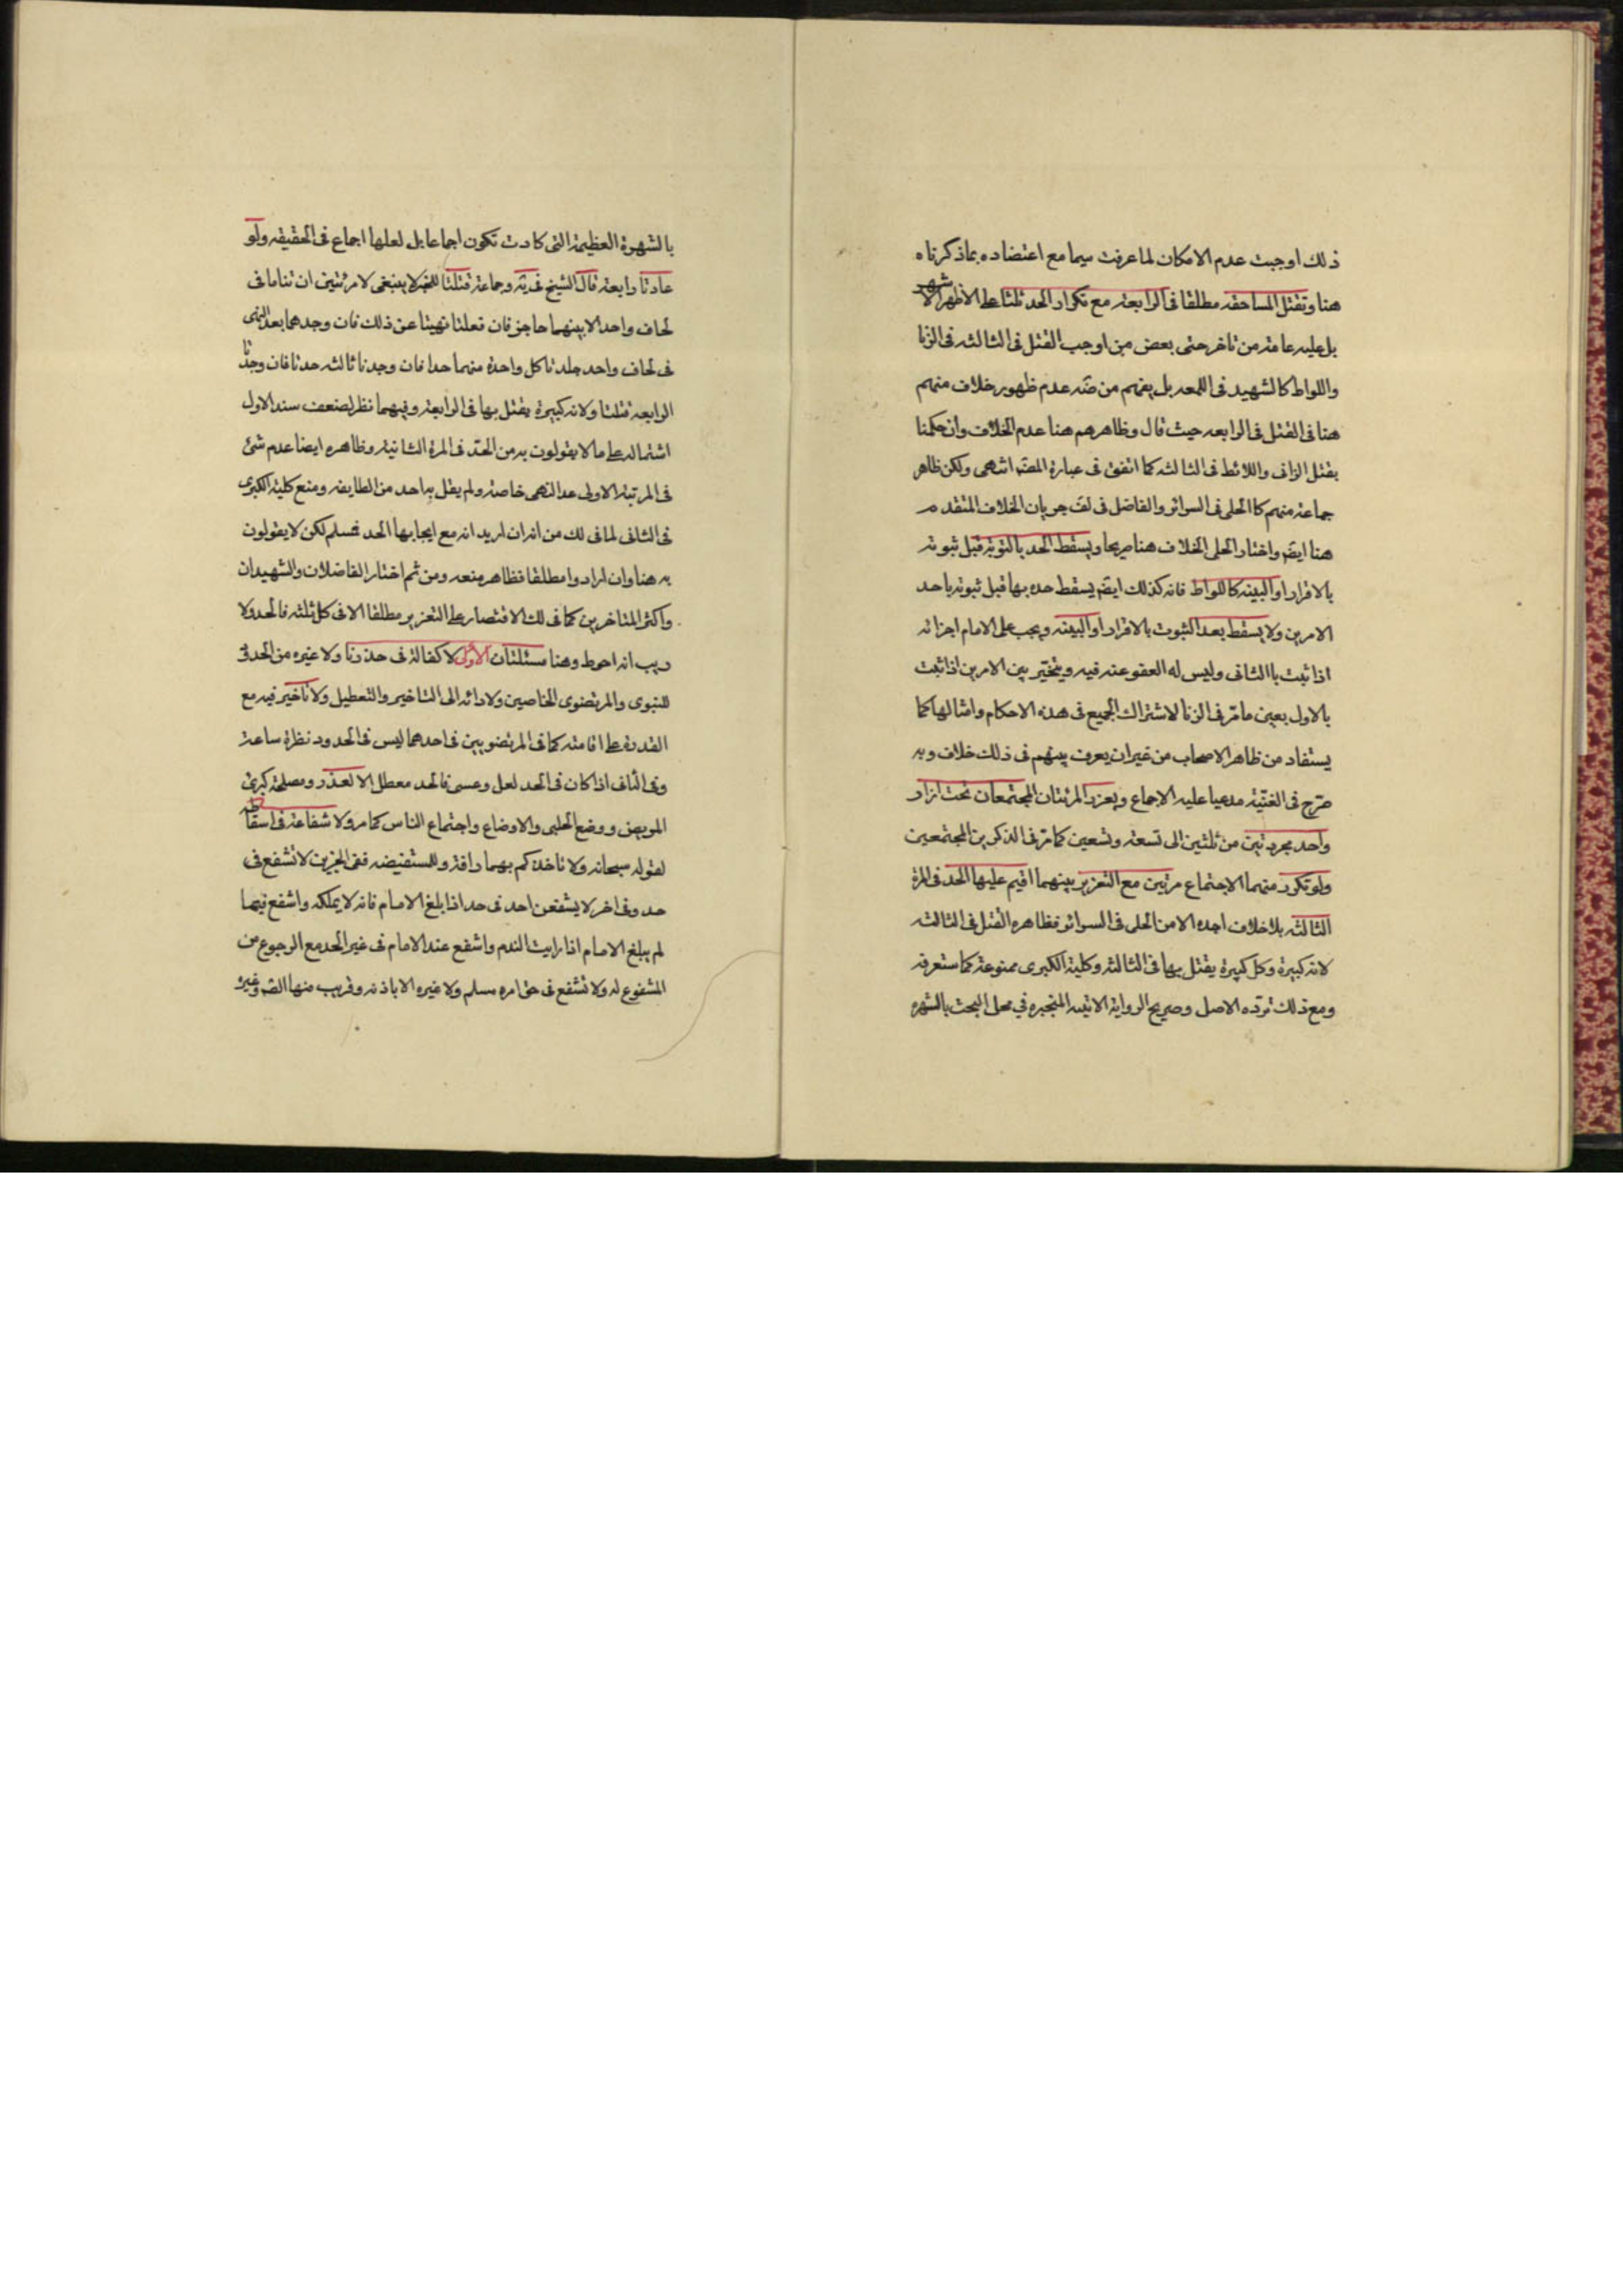 ذلك اوجبت عدم الامكان لما عرفت سيما مع اعتضاده بماذكرناه
هنا وتقتل المساحقه مطلقا فى الرابعة مع تكرار الحد ثلثا على الاظهر الاشهر
بل عليه عامة من تاخر حتى بعض من اوجب القتل فى الثالثه فى الزنا
واللواط كالشهيد فى اللمعه بل يفهم من ضه عدم ظهور خلاف منهم
هنا فى القتل فى الرابعه حيث قال وظاهرهم هنا عدم الخلاف وان حكمنا
بقتل الزانى واللائط فى الثالثه كما اتفق فى عبارة المصنف انتهى ولكن ظاهر
جماعة منهم كالحلى فى السرائر والفاضل فى لف جريان الخلاف المتقدم
هنا ايضا واختار الحلى الخلاف هنا صريحا ويسقط الحد بالتوبة قبل ثبوته
بالاقرار او البينه كاللواط فانه كذلك ايضا يسقط حده بها قبل ثبوته باحد
الامرين ولا يسقط بعد الثبوت بالاقرار او البينه ويجب على الامام اجرائه
اذا ثبت باالثانى وليس له العفو عنه فيه ويتخير بين الامرين اذا ثبت
بالاول بعين مامر فى الزنا لاشتراك الجميع فى هذه الاحكام وامثالها كما
يستفاد من ظاهر الاصحاب من غير ان يعرف بينهم فى ذلك خلاف وبه
صرح فى الغنية مدعيا عليه الاجماع ويعزر المرئتان المجتمعان تحت ازار
واحد مجردتين من ثلثين الى تسعة وتسعين كما مر فى الذكرين المجتمعين
ولو تكرر منهما الاجتماع مرتين مع التعزير بينهما اقيم عليها الحد فى المرة
الثالثه بلا خلاف اجده الا من الحلى فى السرائر فظاهره القتل فى الثالثه
لانه كبيرة وكل كبيرة يقتل بها فى الثالثه وكلية الكبرى ممنوعة كما ستعرفه
ومع ذلك ترده الاصل وصريح الرواية الاتيه المنجبره فى محل البحث بالشهره
بالشهرة العظيمة التى كادت تكون اجماعا بل لعلها اجماع فى الحقيقه ولو
عادتا رابعة قال الشيخ فى يه وجماعة قتلتا للخبر لا ينبغى لامرئتين ان تناما فى
لحاف واحد الا بينهما حاجز فان فعلتا نهيتا عن ذلك فان وجدهما بعد النهى
فى لحاف واحد جلدتا كل واحدة منهما حدا فان وجدتا ثالثه حدتا فان وجدتا
الرابعه قتلتا ولانه كبيرة يقتل بها فى الرابعة وفيهما نظر لضعف سند الاول
اشتماله على ما لا يقولون به من الحد فى المرة الثانية وظاهره ايضا عدم شئ
فى المرتبة الاولى عدا النهى خاصة ولم يقل به احد من الطايفه ومنع كلية الكبرى
فى الثانى لما فى لك من انه ان اريد انه مع ايجابها الحد فمسلم لكن لا يقولون
به هنا وان ارادوا مطلقا فظاهر منعه ومن ثم اختار الفاضلان والشهيدان
واكثر المتاخرين كما فى لك الاقتصار على التعزير مطلقا الا فى كل ثلثه فالحد ولا
ريب انه احوط وهنا مسئلتان الاولى لا كفالة فى حد زنا ولا غيره من الحدود
للنبوى والمرتضوى الخاصين ولادائه الى التاخير والتعطيل ولا تاخير فيه مع
القدرة على اقامته كما فى المرتضويين فى احدهما ليس فى الحدود نظرة ساعة
وفى الثانى اذا كان فى الحد لعل وعسى فالحد معطل الا لعذر ومصلحة كبرئ
المريض ووضع الحبلى والاوضاع واجتماع الناس كما مر ولا شفاعة فى اسقاطه
لقوله سبحانه ولا تاخذكم بهما رافة وللمستفيضه ففى الخبرين لا تشفع فى
حد وفى اخر لا يشفعن احد فى حد اذا بلغ الامام فانه لا يملكه واشفع فيما
لم يبلغ الامام اذا رايت الندم واشفع عند الامام فى غير الحد مع الرجوع من
المشفوع له ولا تشفع فى حق امره مسلم ولا غيره الا باذنه وقريب منها القم وغيره